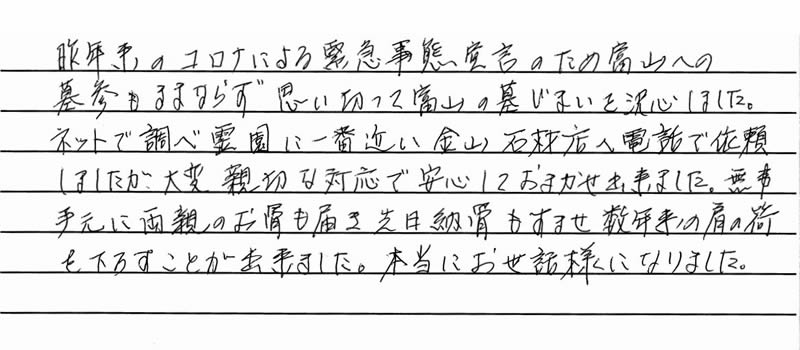 昨年来のコロナによる緊急事態宣言のため富山への
墓参もままならず思い切って富山の墓じまいを決心しました。
ネットで調べ霊園に一番近い金山石材店へ電話で依頼
しましたが大変親切な対応で安心しておまかせ出来ました。無事
手元に両親のお骨も届き先日納骨もすませ数年来の肩の荷
を下ろすことが出来ました。本当にお世話様になりました。